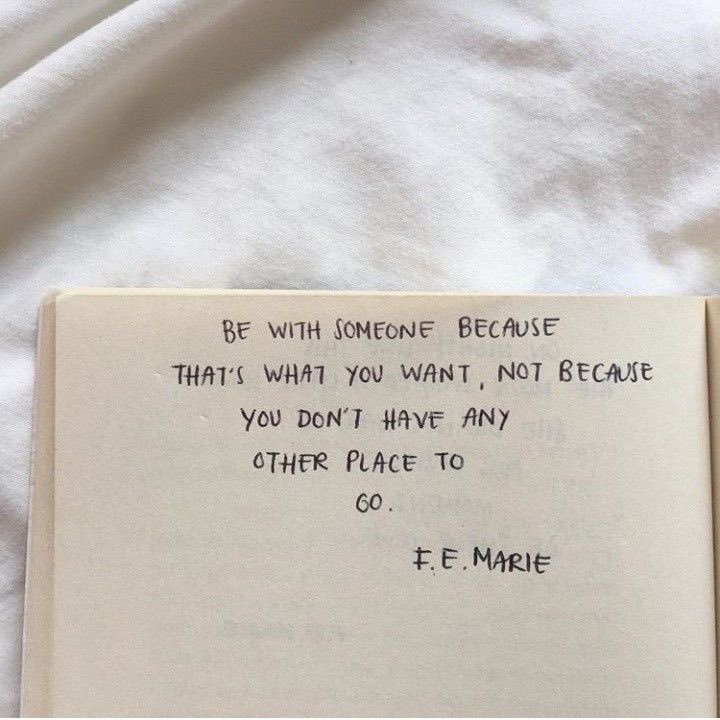 BE WITH SOMEONE BECAUSE
THAT'S WHAT YOU WANT, NOT BECAUSE
YOU DON'T HAVE ANY
OTHER PLACE TO
GO.
F.E.MARIE